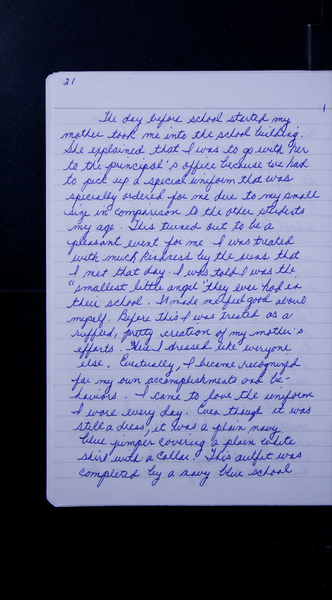 21
The day before school started my
mother took me into the school building.
She explained that I was to go with her
to the principal's office because we had
to pick up a special uniform that was
specially ordered for me due to my small
size in comparison to the other students
my age. This turned out to be a
pleasant event for me. I was treated
with much kindness by the nuns that
I met that day. I was told I was the
"smallest little angel" they ever had in
their school. It made me feel good about
myself. Before this I was treated as a
ruffled, pretty creation of my mother's
efforts. Here I dressed like everyone
else. Eventually, I became recognized
for my own accomplishments and be-
haviors. I came to love the uniform
I wore every day. Even though it was
still a dress, it was a plain navy
blue jumper covering a plain white
shirt with a collar. This outfit was
completed by a navy blue school